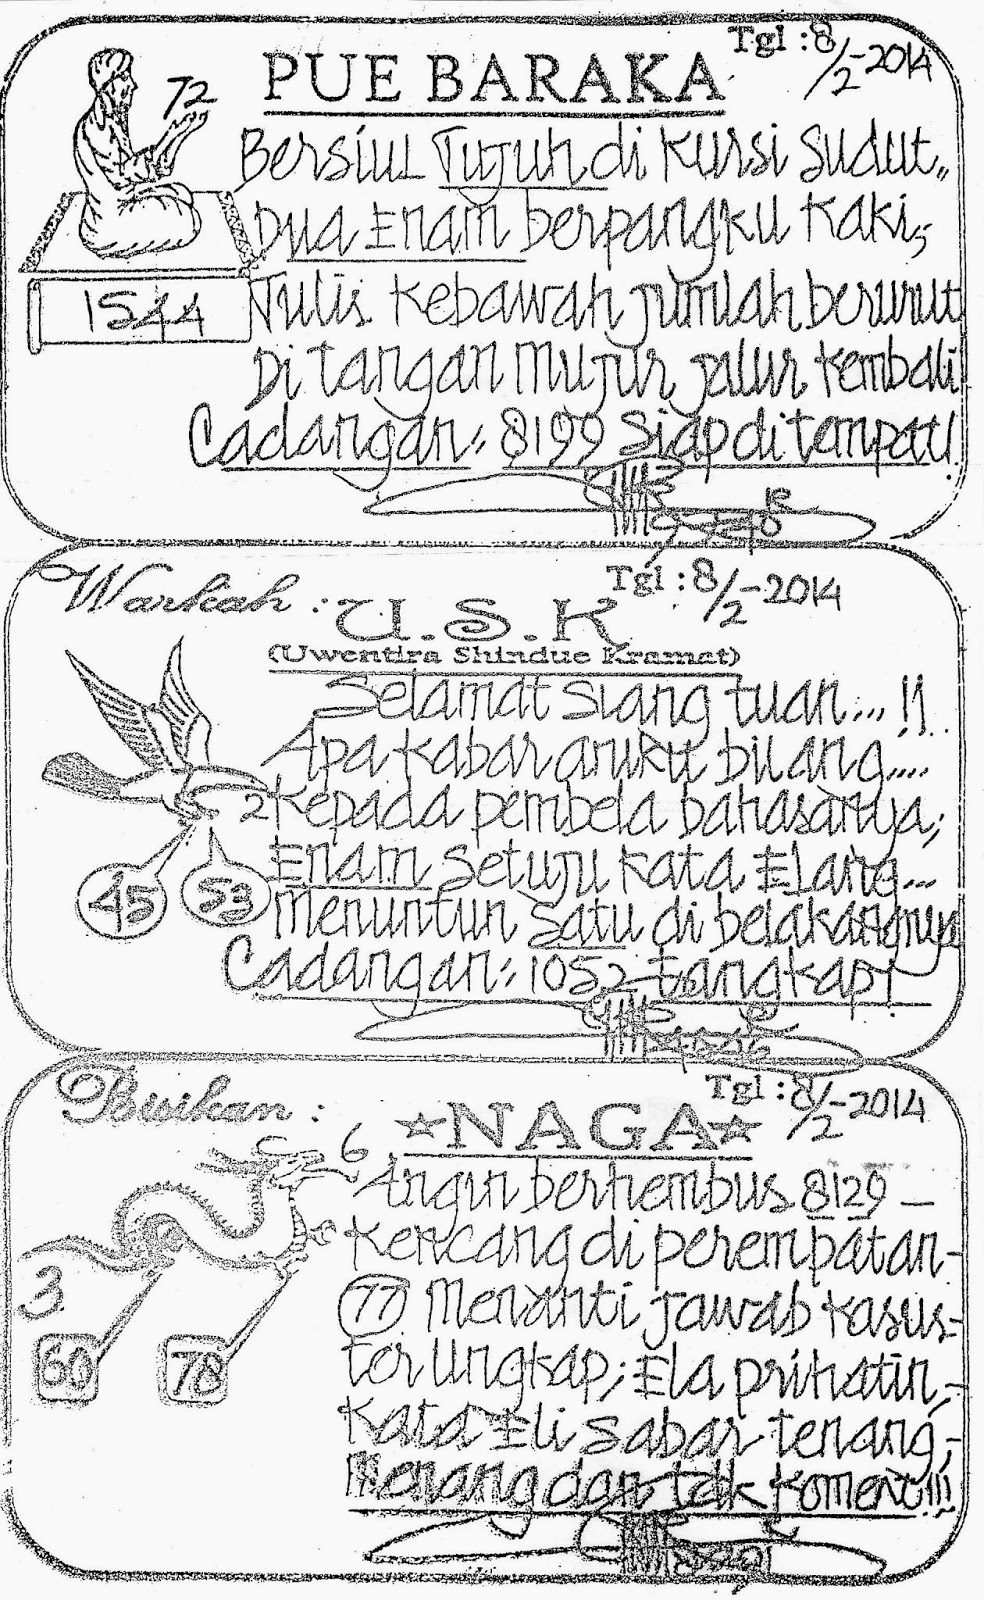 Tgl : 8/2-2014
PUE BARAKA
72
Bersiul Tujuh di Kursi Sudut,,
Dua Enam berpangku Kaki,;
1544
Tulis Kebawah jumlah berurut
Di tangan Mujur jalur Kembali
Cadangan: 8199 Siap ditempat!
Tgl : 8/2-2014
Warkah : U.S.K
(Uwentira Shindue Kramat)
Selamat Siang tuan... !!
Apa Kabar anuku bilang....
2
Kepada pembela bahasanya;
45 53
Enam Setuju Kata Elang...
Menuntun Satu di belakangnya
Cadangan: 1052 Tangkap!
Tgl : 8/2-2014
Bisikan :
☆NAGA☆
6
Angin berhembus 8129 —
Kencang di perempatan-
3
77 Menanti jawab Kasus-
60 78
ter Ungkap; Ela prihatin,-
Kata Eli Sabar tenang,-
Menang dan tdk Koment!!!